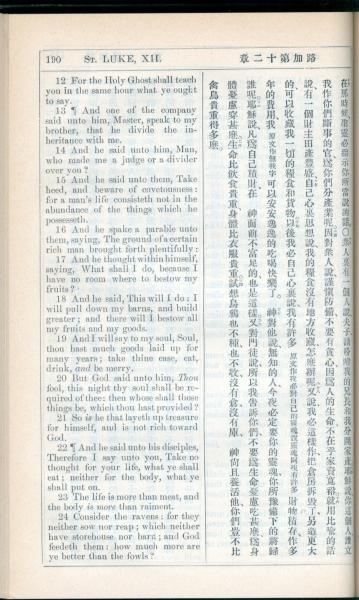 190 ST. LUKE, XII.
路加第十二章
12 For the Holy Ghost shall teach
you in the same hour what ye ought
to say.
13 ¶ And one of the company
said unto him, Master, speak to my
brother, that he divide the in-
heritance with me.
14 And he said unto him, Man,
who made me a judge or a divider
over you?
15 And he said unto them, Take
heed, and beware of covetousness:
for a man's life consisteth not in the
abundance of the things which he
possesseth.
16 And he spake a parable unto
them, saying, The ground of a certain
rich man brought forth plentifully:
17 And he thought within himself,
saying, What shall I do, because I
have no room where to bestow my
fruits?
18 And he said, This will I do: I
will pull down my barns, and build
greater; and there will I bestow all
my fruits and my goods.
19 And I will say to my soul, Soul,
thou hast much goods laid up for
many years; take thine ease, eat,
drink, and be merry.
20 But God said unto him, Thou
fool, this night thy soul shall be re-
quired of thee: then whose shall those
things be, which thou hast provided?
21 So is he that layeth up treasure
for himself, and is not rich toward
God.
22 ¶ And he said unto his disciples,
Therefore I say unto you, Take no
thought for your life, what ye shall
eat; neither for the body, what ye
shall put on.
23 The life is more than meat, and
the body is more than raiment.
24 Consider the ravens: for they
neither sow nor reap; which neither
have storehouse nor barn; and God
feedeth them: how much more are
ye better than the fowls?
我作你們斷事的官爲你們分產業呢因對衆人說謹愼防備不要有貪心因爲人的生命不在乎家資寬裕就用比喩的話
說有一個財主田產豐盛自己心裏思想說我的糧食沒有地方收藏怎麽辦呢又說我必這樣作把倉房拆毀了另造更大
的可以收藏我一切的糧食和貨物以後我必自己心裏說我有許多
年的費用我
可以安安逸逸的吃喝快樂了。神對他說無知的人今夜必定要你的靈魂你所豫備下的將歸
誰呢耶穌說凡爲自己積財在 神面前不富足的也是這樣又對門徒說所以我告訴你們不要爲生命憂慮吃甚麽爲身
體憂慮穿甚麽生命比飮食貴重身體比衣服貴重試想烏鴉也不種也不收沒有倉沒有庫 神尙且養活他你們豈不比
禽鳥貴重得多麽